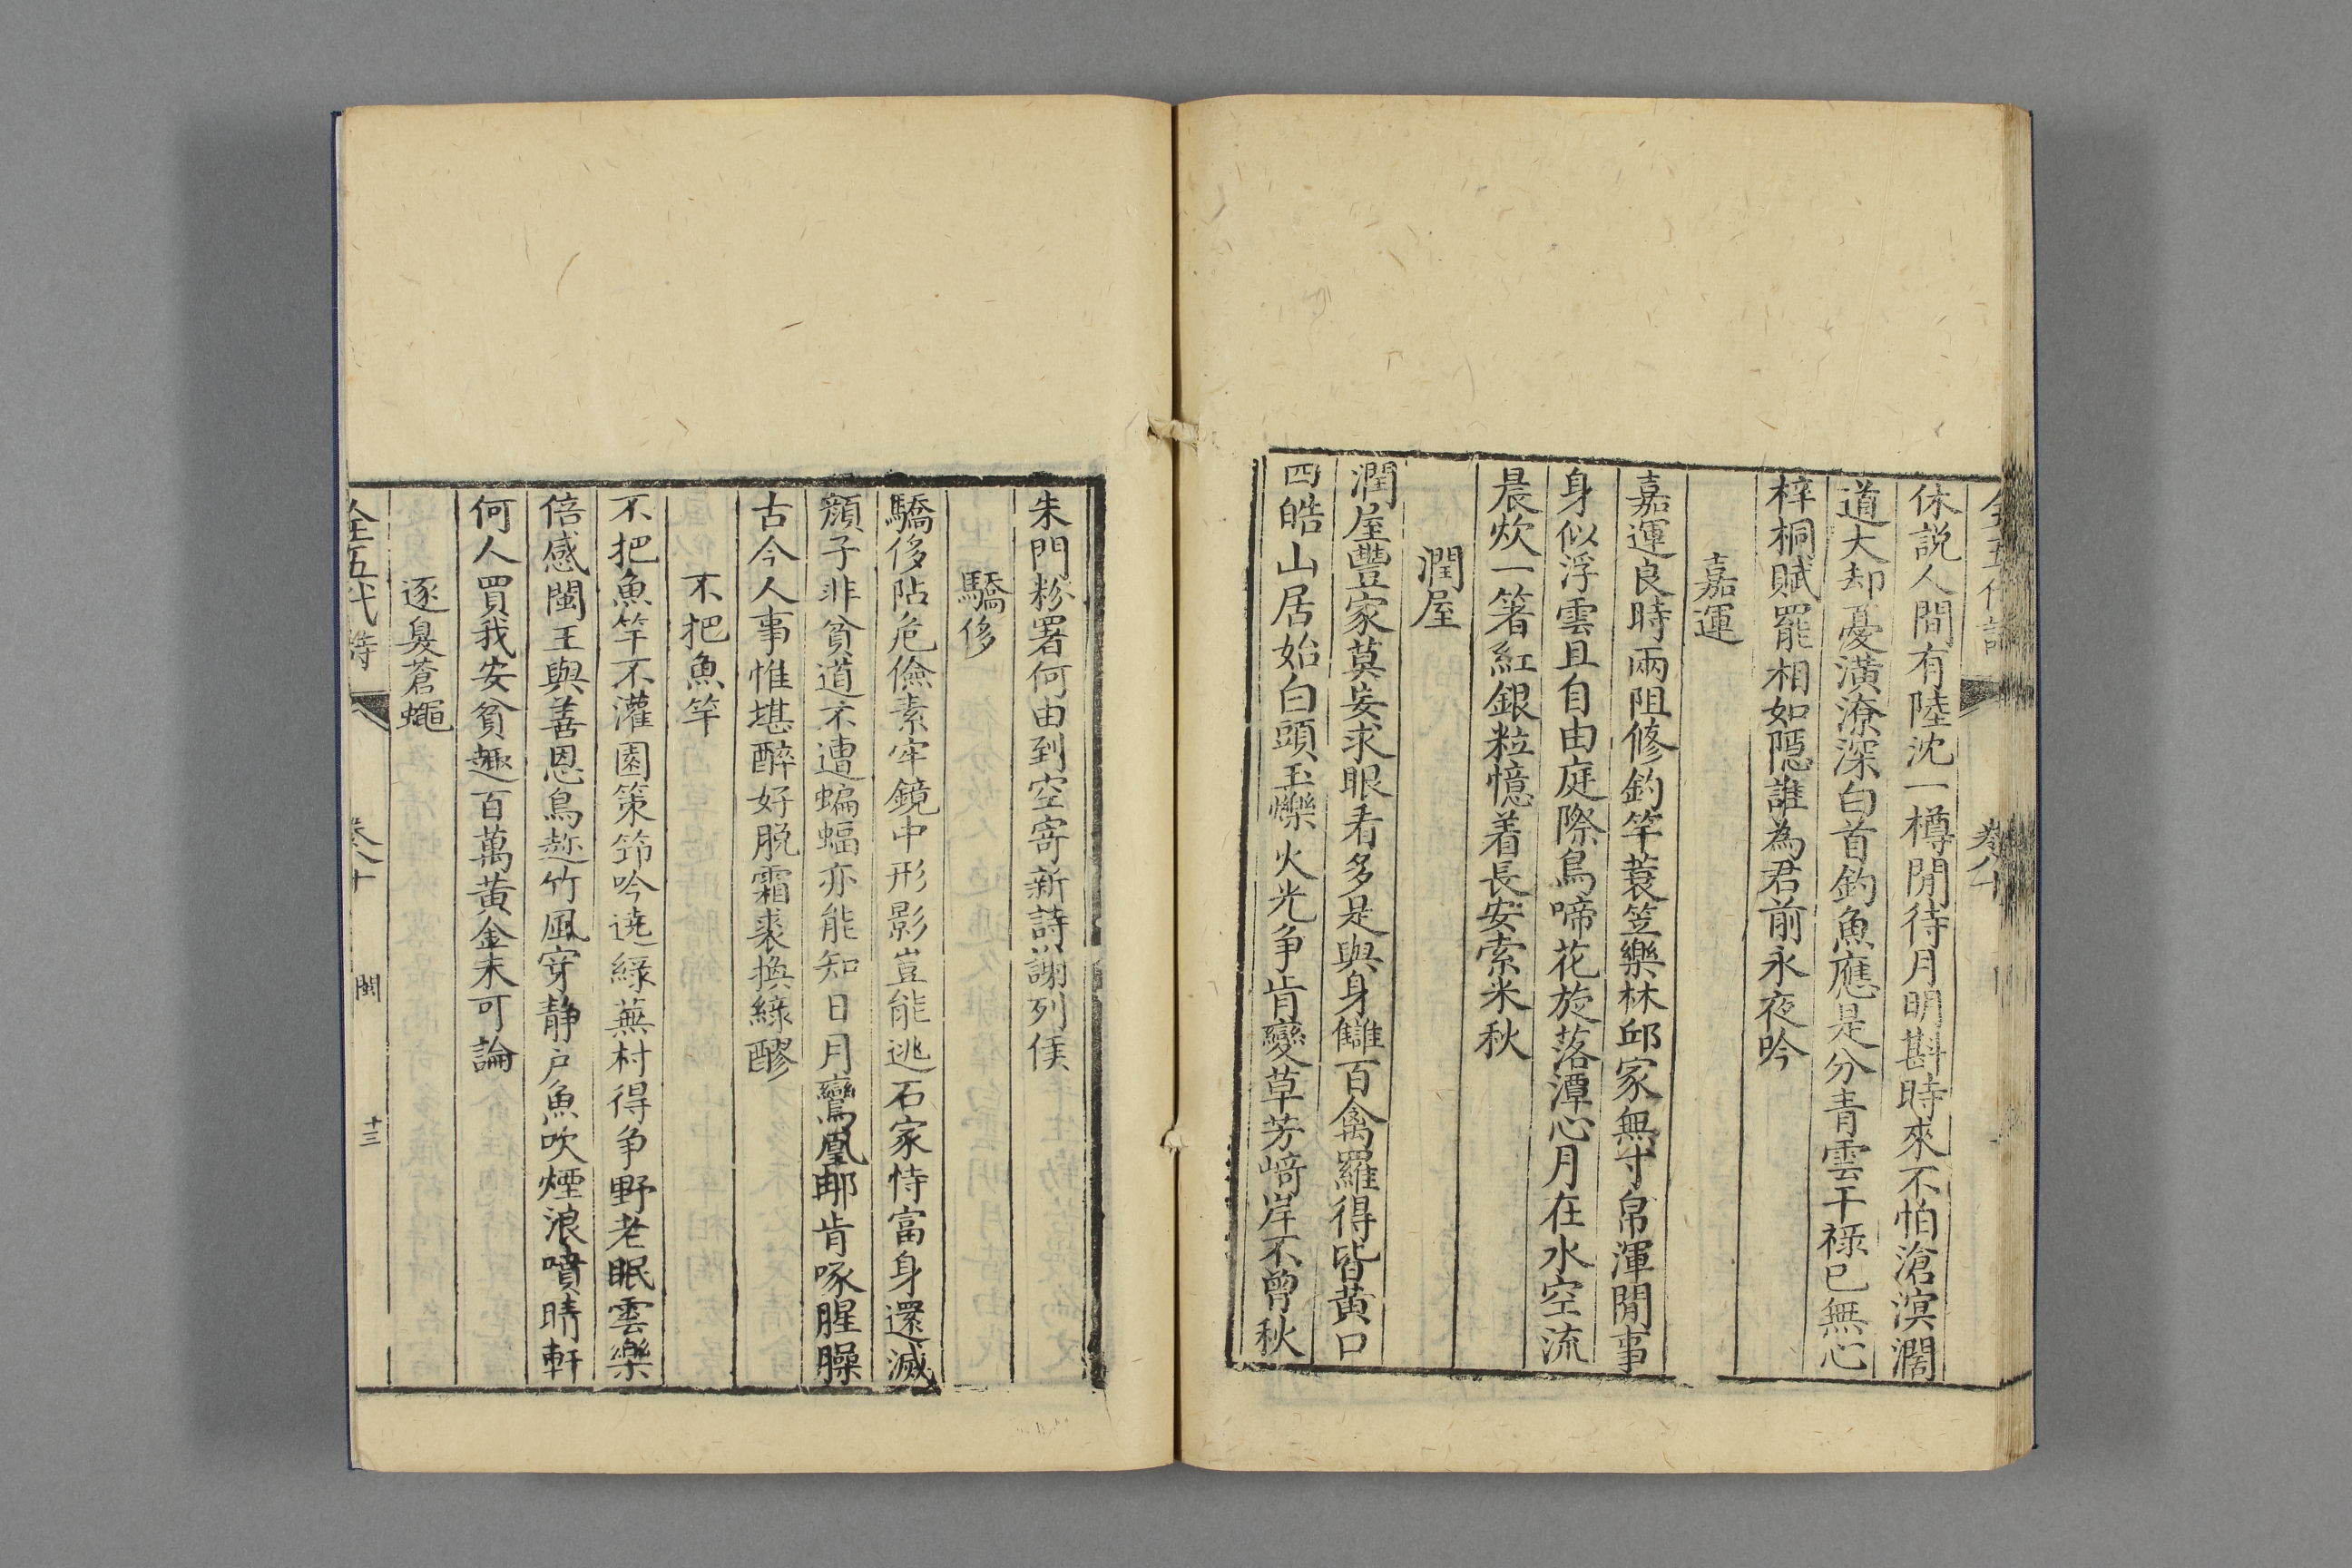 全五代詩 卷八十
休説人間有陸沈一樽閒待月明斟時來不怕滄溟濶
道大却憂潢潦深白首釣魚應是分青雲干祿已無心
梓桐賦罷相如隠誰為君前永夜吟
嘉運
嘉運良時兩阻修釣竿蓑笠樂林邱家無寸帛渾閒事
身似浮雲且自由庭際鳥啼花旋落潭心月在水空流
晨炊一箸紅銀粒憶着長安索米秋
潤屋
潤屋豐家莫妄求眼看多是與身讎百禽羅得皆黃口
四皓山居始白頭玉爍火光争肯變草芳崎岸不曾秋
朱門粉署何由到空寄新詩謝列侯
驕侈
驕侈阽危儉素牢鏡中形影豈能逃石家恃富身還滅
顏子非貧道不遭蝙蝠亦能知日月鸞凰郍肯啄腥臊
古今人事惟堪醉好脱霜裘換綠醪
不把魚竿
不把魚竿不灌園策筇吟遶綠蕪村得争野老眠雲樂
倍感閩王與善恩鳥趂竹風穿靜戸魚吹煙浪噴晴軒
何人買我安貧趣百萬黃金未可論
逐臭蒼蠅
全五代詩 卷八十 閩 十三